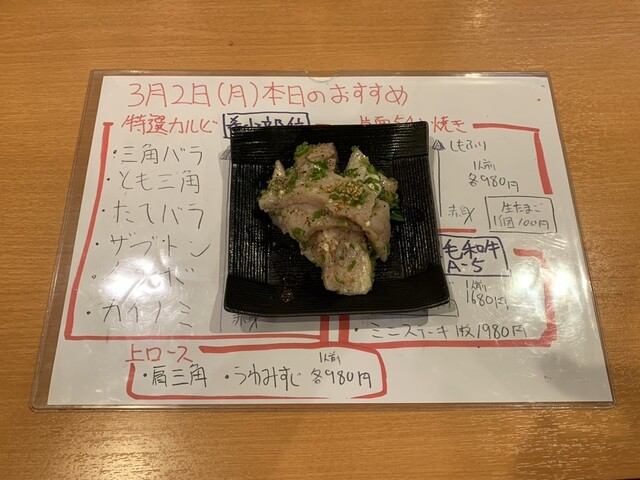 3月2日(月)本日のおすすめ
特選カルビ
焼き
・三角バラ
・とも三角
・たてバラ
・ザブトン
・カイノミ
赤身
しもふり
1人前
各980円
赤身
生たまご
1個100円
毛和牛
A-5
1人前
1680円
・ミニステーキ1枚1980円
上ロース
・肩三角 ・うわみすじ 1人前 各980円